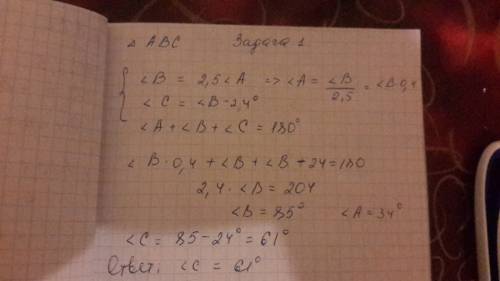 △ ABC Задача 1
∠B = 2,5∠A => ∠A = ∠B/2,5 = ∠B·0,4
∠C = ∠B-2,4°
∠A + ∠B + ∠C = 180°
∠B·0,4 + ∠B + ∠B + 24 = 180
2,4·∠B = 204
∠B = 85° ∠A = 34°
∠C = 85-24° = 61°
Ответ: ∠C = 61°